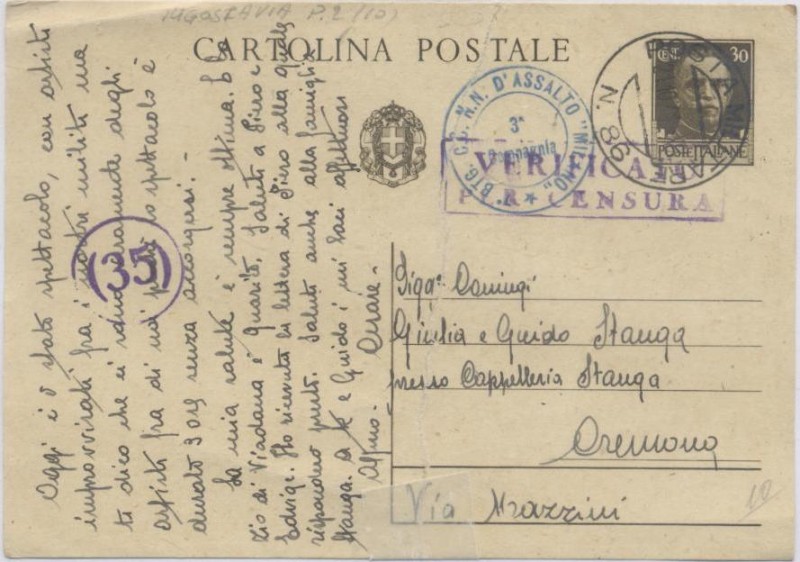 IUGOSLAVIA P.2 (10)
CARTOLINA POSTALE
CENT. 30
POSTE ITALIANE
POSTA MILITARE N. 86
BTG. CC. N.N. D'ASSALTO "MILANO"
3ª
Compagnia
VERIFICATO
PER CENSURA
35
Oggi c'è stato spettacolo, con artisti
improvvisati fra i nostri militi ma
ti dico che ci sono veramente degli
artisti fra di noi lo spettacolo è
durato 3 ore senza accorgersi. -
La mia salute è sempre ottima. Lo
zio di Viadana è guarito. Saluti a Piero e
Edvige. Ho ricevuto la lettera di Piero alla quale
risponderò presto. Saluti anche alla famiglia
Stanga. A te e Guido i mi baci affettuosi
Cesare -
Sigg.ri Coniugi
Giulia e Guido Stanga
presso Cappelleria Stanga
Cremona
Via Mazzini
10